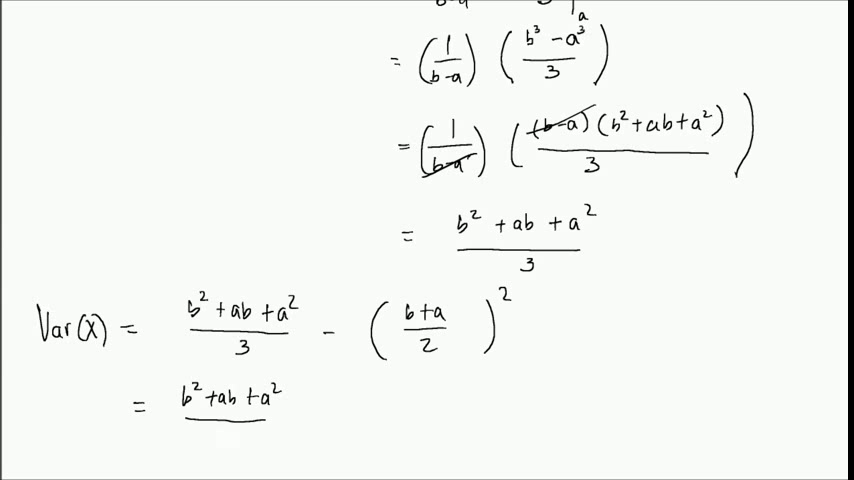 a
= (1/(b-a)) ((b³ - a³)/3)
= (1/(b-a)) ((b-a)(b² + ab + a²)/3)
= (b² + ab + a²)/3
Var(X) = (b² + ab + a²)/3 - ((b+a)/2)²
= b² + ab + a²